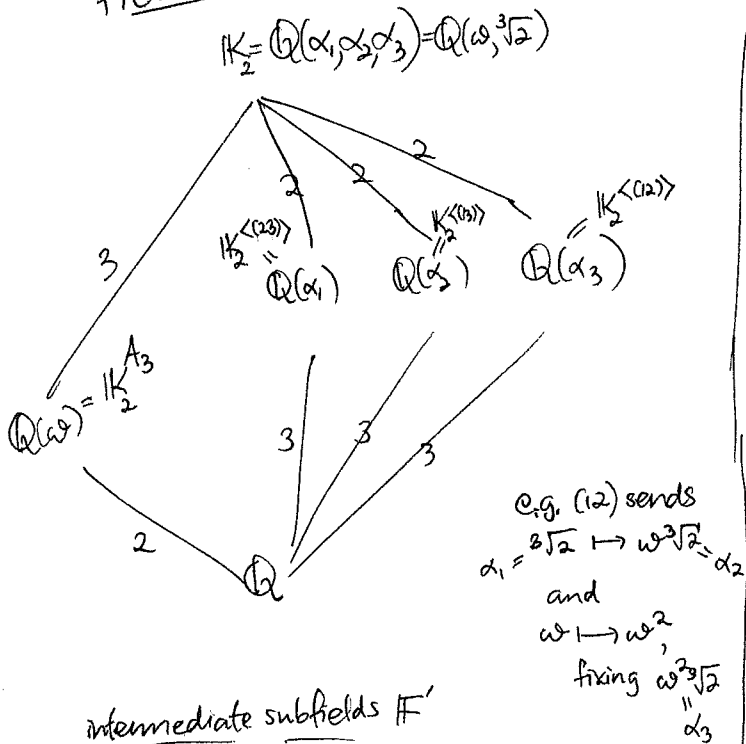 𝕂₂ = ℚ(α₁,α₂,α₃) = ℚ(ω, ³√2)
2
2
2
3
𝕂₂^<(23)> = ℚ(α₁)
𝕂₂^<(13)> = ℚ(α₂)
𝕂₂^<(12)> = ℚ(α₃)
ℚ(ω) = 𝕂₂^A₃
3
3
3
2
ℚ
e.g. (12) sends
α₁ = ³√2 ↦ ω³√2 = α₂
and
ω ↦ ω²,
fixing ω²³√2
=
α₃
intermediate subfields 𝔽′